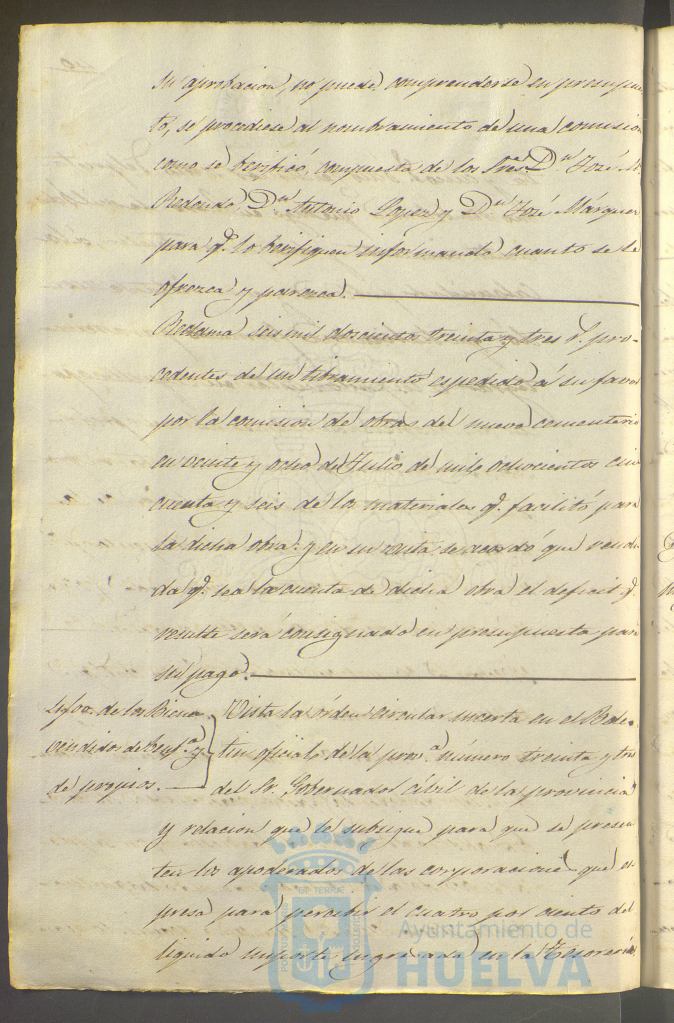 su aprobacion, no puede comprenderse en presupues
to, se procediese al nombramiento de una comision
como se berificó, compuesta de los Sres. Dn. José M.
Redondo, Dn. Antonio Lopez y Dn. José Márquez
para q. lo berifiquen informando cuanto se le
ofrezca y parezca.
Reclama seis mil doscientos treinta y tres r. pro-
cedentes de un libramiento espedido á su favor
por la comision de obras del nuevo cementerio
en veinte y ocho de Julio de mil ochocientos cin
cuenta y seis de los materiales q. facilitó para
la dicha obra: y en su vista se acordó que rendi
da q. sea la cuenta de dicha obra el deficit q.
resulte será consignado en presupuesto para
su pago.
4 p% de los Bienes
vendidos de y
de propios.
Vista la orden circular inserta en el Bole-
tin oficial de la prova. número treinta y tres
del Sr. Gobernador Cibil de la provincia
y relacion que le subsigue para que se presen
ten los apoderados de las corporaciones que es
presa para percibir el cuatro por ciento del
liquido importe ingresado en la Tesoreria
Ayuntamiento de
HUELVA